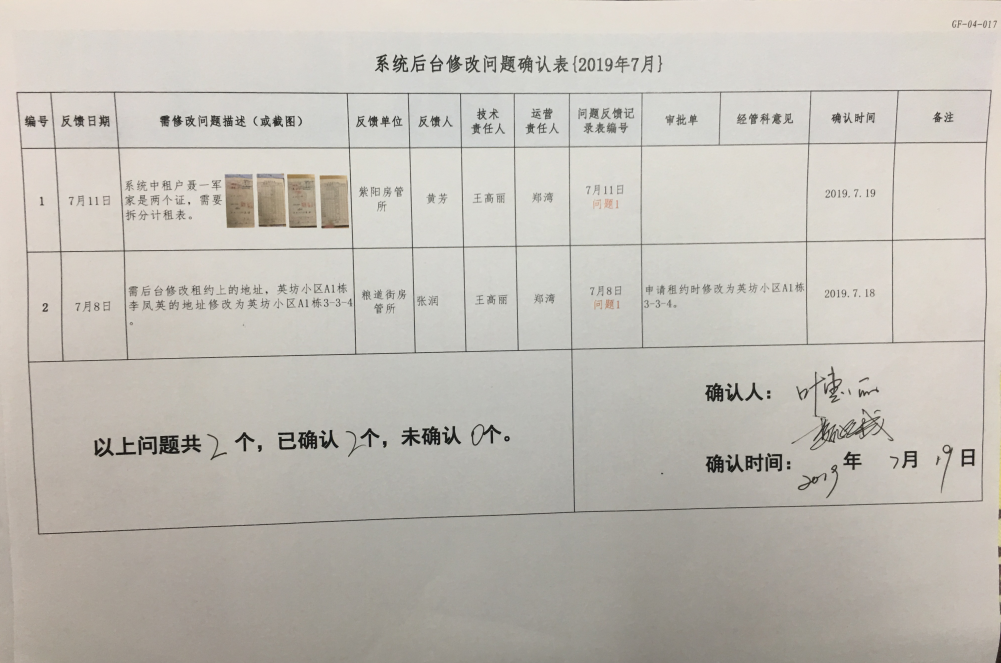 GF-04-017
系统后台修改问题确认表{2019年7月}
编号 反馈日期 需修改问题描述（或截图） 反馈单位 反馈人 技术责任人 运营责任人 问题反馈记录表编号 审批单 经管科意见 确认时间 备注
1 7月11日
系统中租户聂一军
家是两个证，需要
拆分计租表。
紫阳房管
所
黄芳 王高丽 郑湾
7月11日
问题1
2019.7.19
2 7月8日
需后台修改租约上的地址，英坊小区A1栋
李凤英的地址修改为英坊小区A1栋3-3-4
。
粮道街房
管所
张润 王高丽 郑湾
7月8日
问题1
申请租约时修改为英坊小区A1栋
3-3-4。
2019.7.18
以上问题共2个，已确认2个，未确认0个。
确认人：叶惠丽
确认时间：2019年7月19日